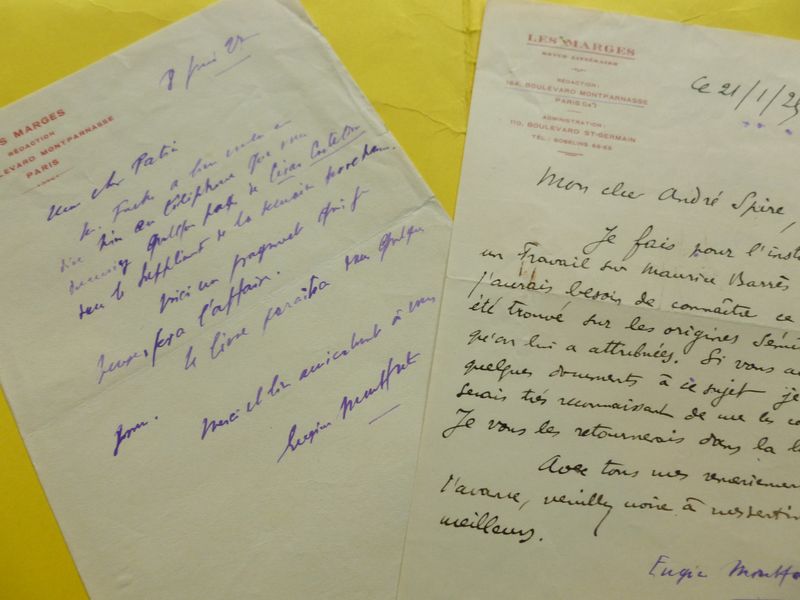 S MARGES
RÉDACTION
LEVARD MONTPARNASSE
PARIS
8
Mon cher
M. a bien voulu
dire hier au téléphone que vous
quelques pages de César Casteldor
dans le supplément de la semaine prochaine.
Voici un fragment qui je
pense fera l'affaire.
Le livre paraîtra dans quelques
jours.
Merci et bien amicalement à vous
Eugène Montfort
LES MARGES
REVUE LITTÉRAIRE
RÉDACTION:
BOULEVARD MONTPARNASSE
PARIS
ADMINISTRATION:
110, BOULEVARD ST-GERMAIN
TÉL.: GOBELINS
Ce 21/1/25
Mon cher André Spire,
Je fais pour l'inst
un travail sur Maurice Barrès
j'aurais besoin de connaître ce
été trouvé sur les origines sémi
qu'on lui a attribuées. Si vous a
quelques documents à ce sujet je
serais très reconnaissant de me les c
Je vous les retournerais dans la
Avec tous mes remerciemen
l'avance, veuillez croire à mes senti
meilleurs.
Eugène Montfo